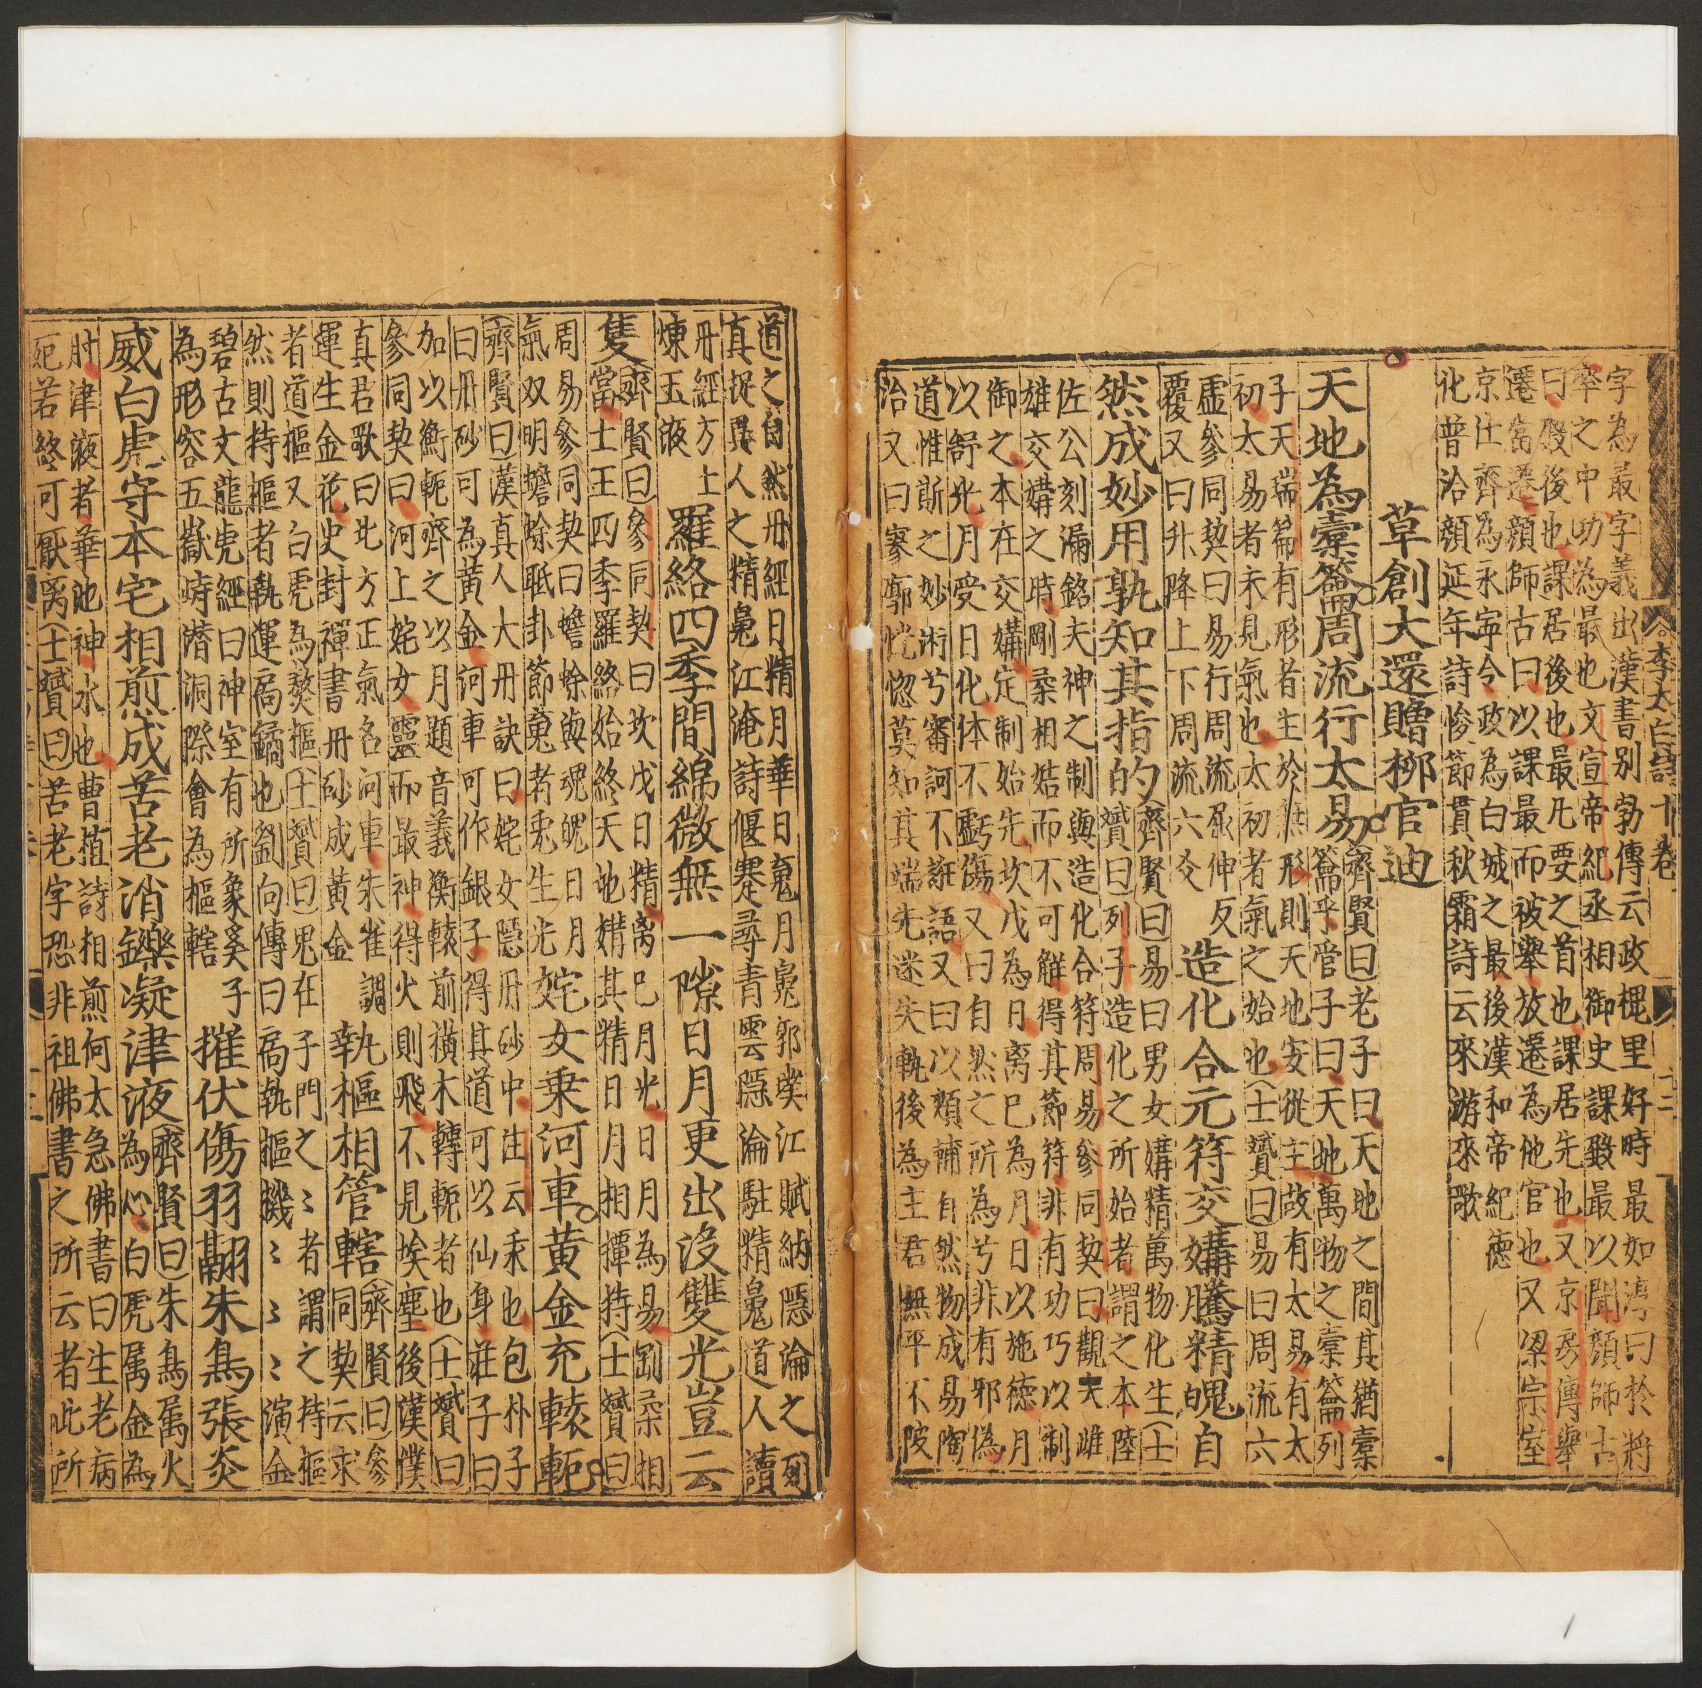 李太白詩十卷
字為最字義出漢書別勃傳云政槐里好時最如淳曰於將
率之中功為最也文宣帝紀丞相御史課殿最以聞顏師古
曰殿後也課居後也最凡要之首也課居先也又京房傳舉
遷當遷顏師古曰以課最而被舉放遷為他官也又梁宗室
京仕齊為永寧令政為白城之最後漢和帝紀德
化普洽顏延年詩峻節貫秋霜詩云來游來歌
草創大還贈柳官迪
天地為橐籥周流行太易
齊賢曰老子曰天地之間其猶橐
籥乎管子曰天地萬物之橐籥列
子天瑞篇有形者生於無形則天地安從生故有太易有太
初太易者未見氣也太初者氣之始也士贇曰易曰周流六
虛參同契曰易行周流屈伸反
覆又曰升降上下周流六爻
造化合元符交媾騰精魄自
然成妙用孰知其指的
齊賢曰易曰男女媾精萬物化生士
贇曰列子造化之所始者謂之本陸
佐公刻漏銘夫神之制與造化合符周易參同契曰觀夫雌
雄交媾之時剛柔相結而不可解得其節符非有功巧以制
御之本在交媾定制始先坎戊為日离巳為月日以施德月
以舒光月受日化体不虧傷又曰自然之所為兮非有邪偽
道惟斯之妙術兮審訶不誑語又曰以類輔自然物成易陶
治又曰寥廓恍惚莫知其端先迷失軌後為主君無平不陂
道之自然丹經日精月華日䰟月䰟郭璞江賦納隱淪之列
真挺異人之精䰟江淹詩偃蹇尋青雲隱淪駐精䰟道人讀
丹經方士
煉玉液
羅絡四季間綿微無一隙日月更出沒雙光豈云
隻
齊賢曰參同契曰坎戊日精离巳月光日月為易剛柔相
當土王四季羅絡始終天地媾其精日月相撢持士贇曰
周易參同契曰蟾蜍與魂魄日月
氣双明蟾蜍眡卦節䰟者兎生光
姹女乗河車黃金充轅軛
齊賢曰漢真人大丹訣曰姹女隱丹砂中注云汞也包朴子
曰丹砂可為黃金河車可作銀子得其道可以仙身莊子曰
加以衡軛齊之以月題音義衡轅前橫木轉軛者也士贇曰
參同契曰河上姹女靈而最神得火則飛不見埃塵後漢僕
真君歌曰北方正氣名河車朱雀調
運生金花史封禪書丹砂成黃金
執樞相管轄
齊賢曰參
同契云求
者道樞又白虎為熬樞士贇曰鬼在子門之〻者謂之持樞
然則持樞者執運扄鐍也劉向傳曰扄執摳機〻〻〻演金
碧古文龍虎經曰神室有所象奚子
為形容五嶽峙潛洞際會為樞轄
摧伏傷羽翮朱鳥張炎
威白虎守本宅相煎成苦老消鑠凝津液
齊賢曰朱鳥属火
為心白虎属金為
肘津液者華池神水也曹植詩相煎何太急佛書曰生老病
死若終可厭离士贇曰苦老字恐非祖佛書之所云者此所